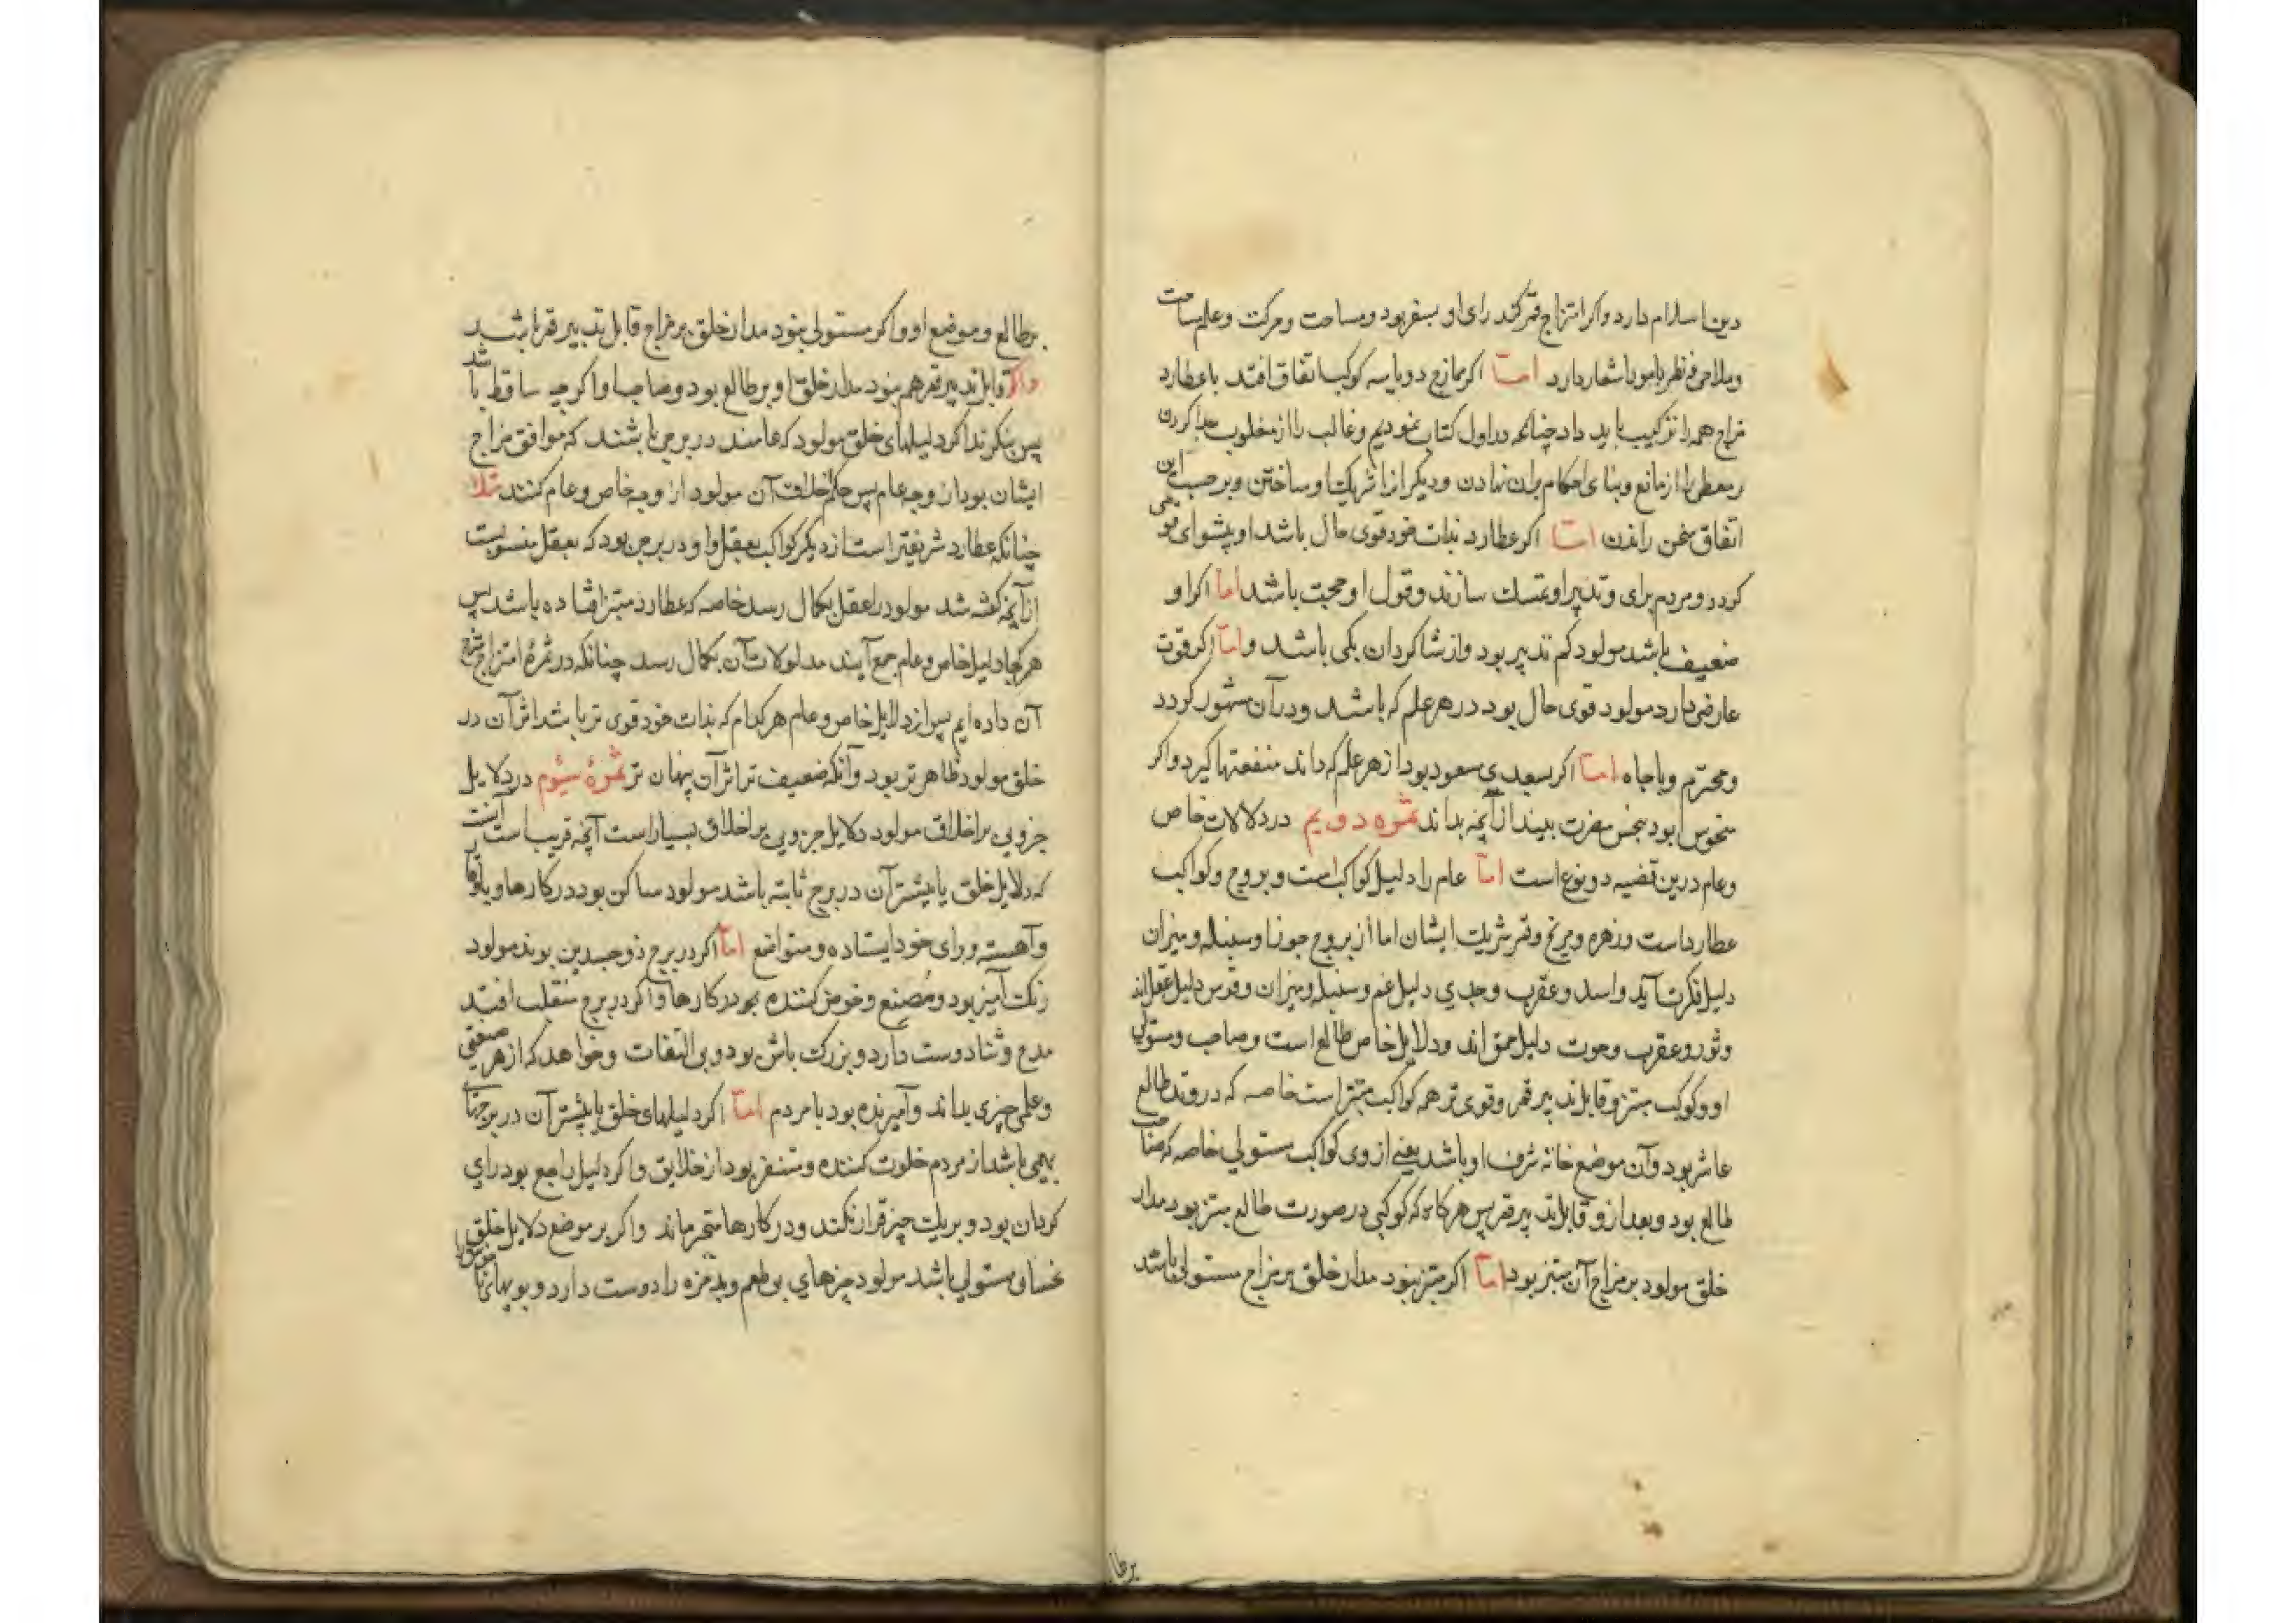 دین اسلام دارد واکر امتزاج قمر کند رای او بسفر بود ومساحت وحرکت وعلم سباحت
وملاحی ونظر بامور اشعار دارد امّا اکر ممازج دو یا سه کوکب اتفاق افتد با عطارد
مزاج همه را ترکیب باید داد چنانکه در اول کتاب نمودیم وغالب را از مغلوب جدا کردن
ومعطی را از مانع وبنای احکام بران نهادن ودیکر انرا شریک او ساختن وبر حسب این
اتفاق سخن راندن امّا اکر عطارد بذات خود قوی حال باشد او پیشوای قومی
کردد ومردم برای وتدبیر او تمسک سازند وقول او حجت باشد امّا اکر او
ضعیف باشد مولود کم تدبیر بود واز شاکردان یکی باشد وامّا اکر قوت
عارضی دارد مولود قوی حال بود در هر علم که باشد ودر آن مشهور کردد
ومحترم وباجاه امّا اکر بسعدی مسعود بود از هر علم که داند منفعتها کیرد واکر
منحوس بود بنحس مضرت بیند از آنچه بداند ثمرهٔ دویم در دلالات خاص
وعام درین قضیه دو نوع است امّا عام را دلیل کواکب است وبروج وکواکب
عطارد است وزهره ومریخ وقمر شریک ایشان اما از بروج جوزا وسنبله ومیزان
دلیل فکرت آید واسد وعقرب وجدی دلیل غم وسنبله ومیزان وقوس دلیل عقل اند
وثور وعقرب وحوت دلیل حمق اند ودلایل خاص طالع است وصاحب ومستولی
او وکوکب مبتز وقابل تدبیر قمر وقوی تر همه کواکب مبتز است خاصه که در وتد طالع
عاشر بود وآن موضع خانه شرف او باشد یعنی از وی کواکب مستولی خاصه که صاحب
طالع بود وبعد ازو قابل تدبیر قمر پس هرکاه که کوکبی در صورت طالع مبتز بود مدار
خلق مولود بر مزاج آن مبتز بود امّا اکر مبتز نبود مدار خلق بر مزاج مستولی باشد
برطا
بر طالع وموضع او واکر مستولی نبود مدار خلق بر مزاج قابل تدبیر قمر باشد
واکر قابل تدبیر قمر هم نبود مدار خلق او بر طالع بود وصاحب او اکر چه ساقط باشد
پس بنکرند اکر دلیلهای خلق مولود که عامند در برجی باشند که موافق مزاج
ایشان بود از وجه عام پس حکم اخلاق آن مولود از وجه خاص وعام کنند مثلا
چنانکه عطارد شریفتر است از دیکر کواکب بعقل واو در برجی بود که بعقل منسوبست
از آنچه کفته شد مولود را عقل بکمال رسد خاصه که عطارد مبتز افتاده باشد پس
هر کجا دلیل خاص وعام جمع آیند مدلولات آن بکمال رسد چنانکه در ثمرهٔ امتزاج شرح
آن داده ایم پس از دلایل خاص وعام هر کدام که بذات خود قوی تر باشد اثر آن در
خلق مولود ظاهر تر بود وآنکه ضعیف تر اثر آن پنهان تر ثمرهٔ سیُوم در دلایل
جزویی بر اخلاق مولود دلایل جزویی بر اخلاق بسیار است آنچه قریب است آنست
که دلایل خلق یا بیشتر آن در برج ثابته باشد مولود ساکن بود در کارها وبا وقار
وآهسته وبرای خود ایستاده ومتواضع امّا اکر در برج ذوجسدین بوند مولود
رنکت آمیز بود ومُصنع وخوض کننده بود در کارها واکر در برج منقلب افتد
مدح وثنا دوست دارد وبزرک باش بود وبی التفات وخواهد که از هر صنعتی
وعلمی چیزی بداند وآمیزنده بود با مردم امّا اکر دلیلهای خلق یا بیشتر آن در برجهای
بهیمی باشد از مردم خلوت کننده ومتنفر بود از خلایق واکر دلیل راجع بود رای
کردان بود وبریک چیز قرار نکند ودر کارها متحیر ماند واکر بر موضع دلایل خلق
نحسان مستولی باشد مولود چیزهای بی طعم وبد مزه را دوست دارد وبویهای ناخوش را